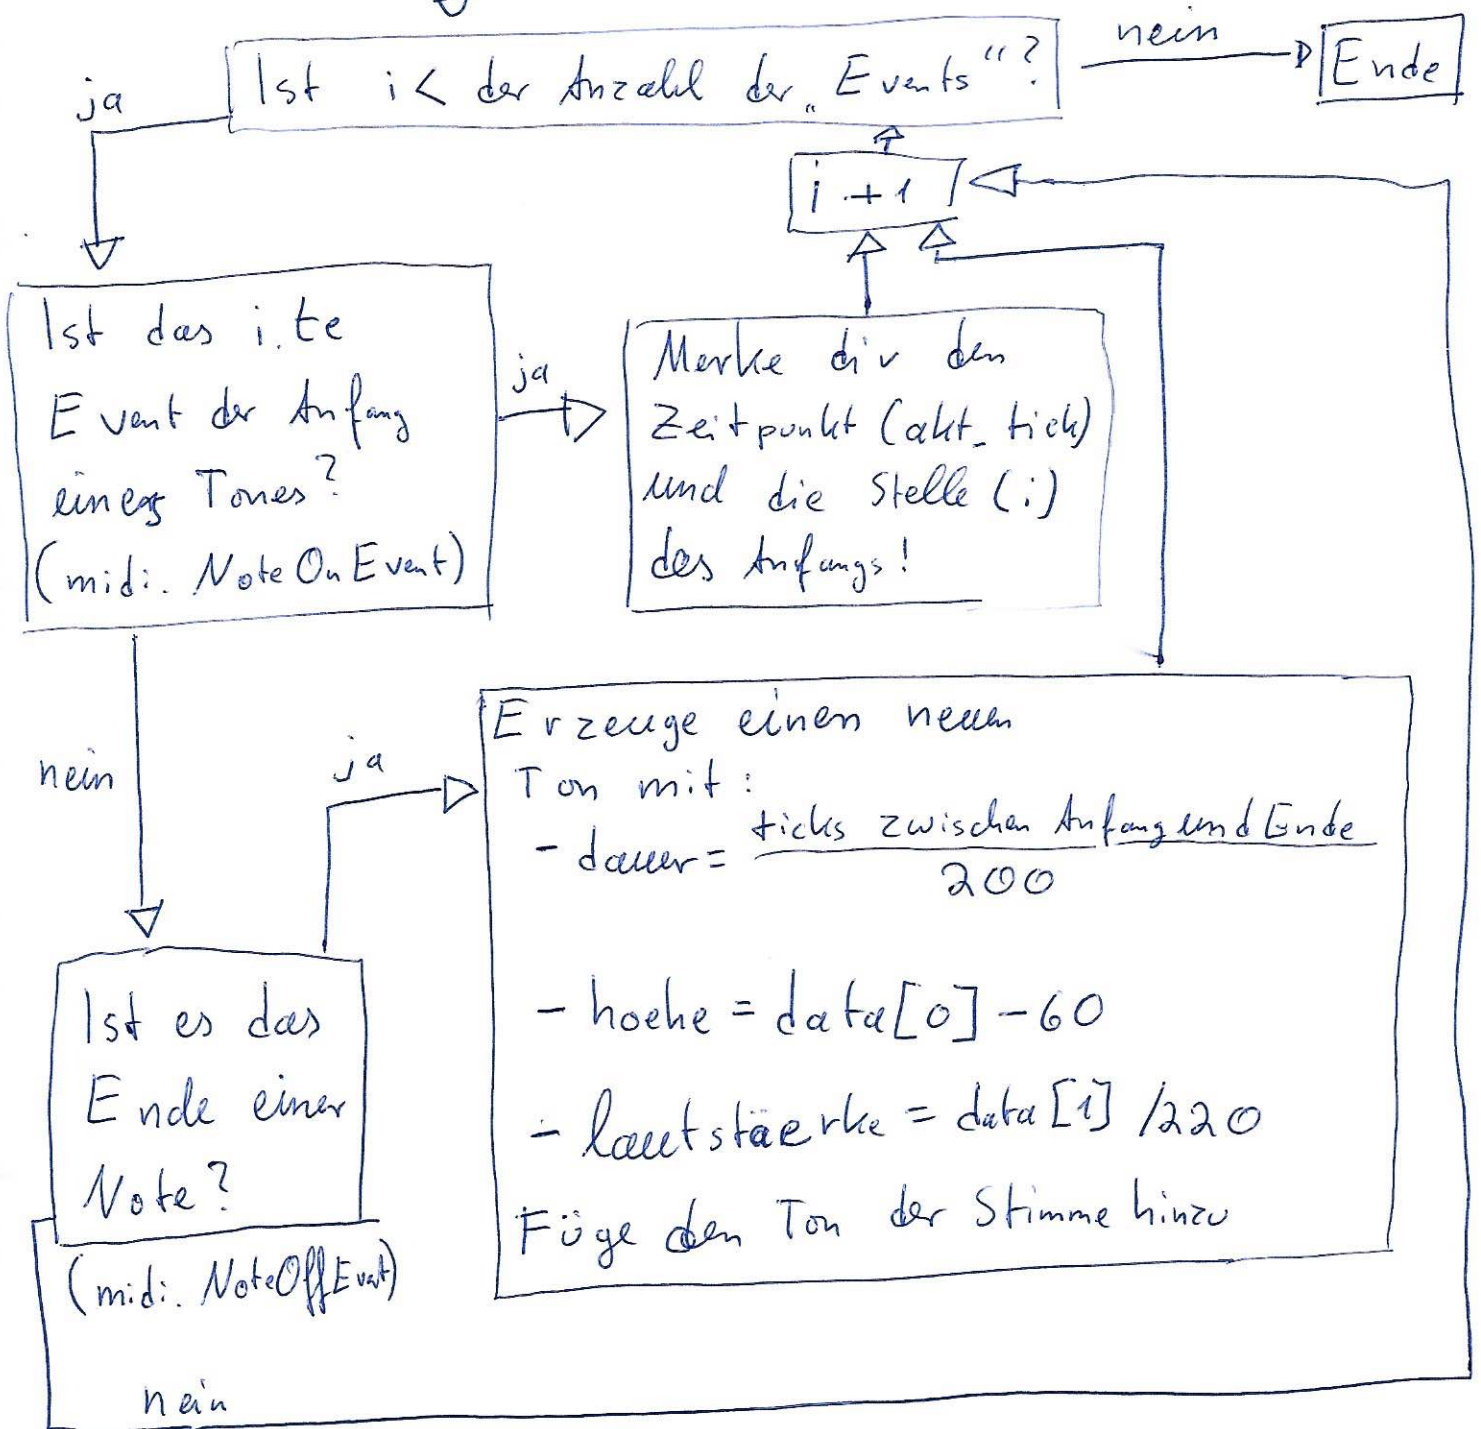 nein
ja
Ist i < der Anzahl der „Events“?
Ende
i + 1
Ist das i.te
Event der Anfang
eines Tones?
(midi. NoteOnEvent)
ja
Merke dir den
Zeitpunkt (akt_tick)
und die Stelle (i)
des Anfangs!
nein
ja
Erzeuge einen neuen
Ton mit:
- dauer = ticks zwischen Anfang und Ende
200
- hoehe = data[0] - 60
- lautstäerke = data[1] /220
Füge den Ton der Stimme hinzu
Ist es das
Ende einer
Note?
(midi. NoteOffEvent)
nein